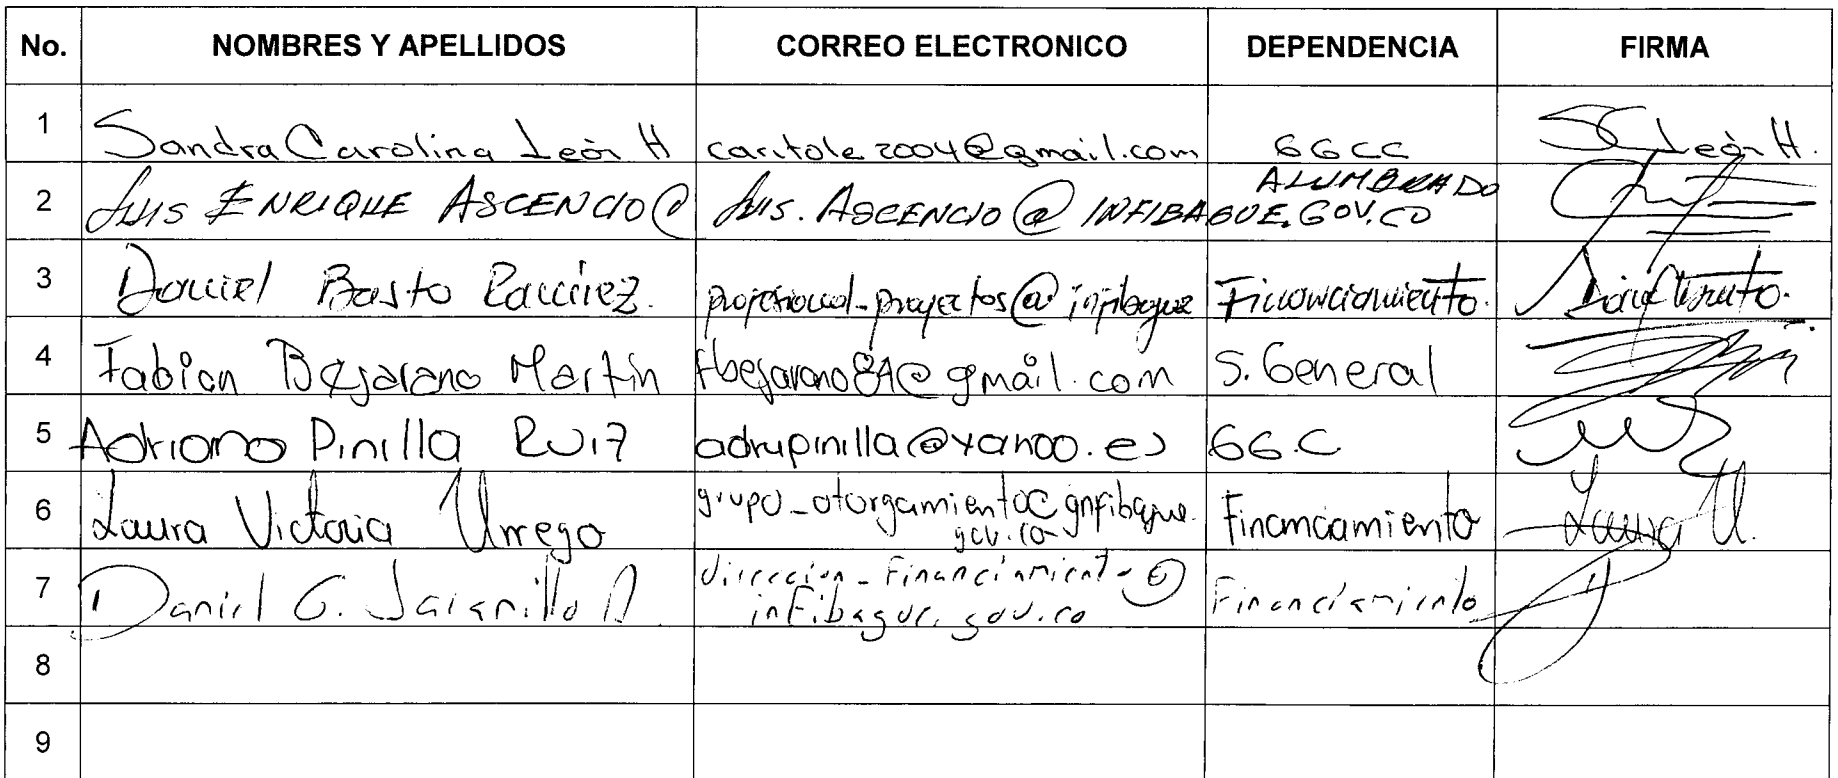 No. NOMBRES Y APELLIDOS CORREO ELECTRONICO DEPENDENCIA FIRMA
1 Sandra Carolina León H caritole2004@gmail.com GGCC SC León H.
2 Luis ENRIQUE ASCENCIO luis.ASCENCIO@INFIBAGUE.GOV.CO ALUMBRADO
3 Daniel Basto Ramírez. profesional_proyectos@infibague Financiamiento.
4 Fabian Bejarano Martín fbejarano84@gmail.com S. General
5 Adriana Pinilla Ruiz adrupinilla@yahoo.es GG.C
6 Laura Victoria Urrego grupo_otorgamiento@infibague. Financiamiento Laura U.
gov.co
7 Daniel G. Jaramillo direccion_financiamiento@ Financiamiento
infibague.gov.co
8
9